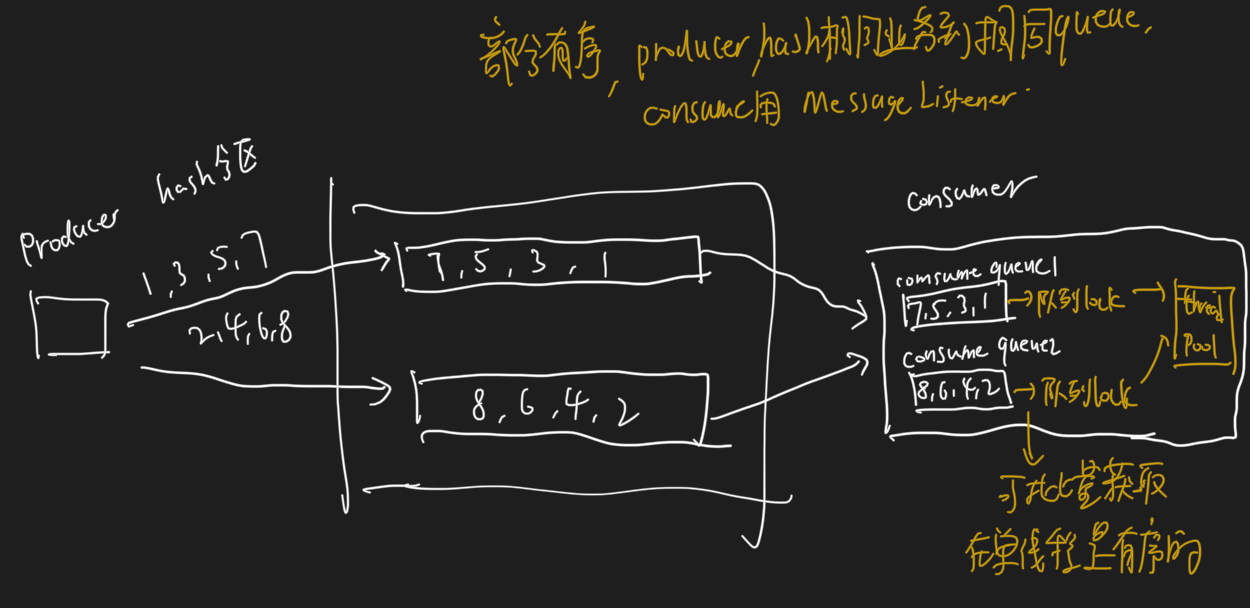 部分有序, producer,hash相同业务到相同queue,
consume用 MessageListener.
hash分区
Producer
1,3,5,7
2,4,6,8
7,5,3,1
8,6,4,2
consumer
comsume queue1
7,5,3,1 队列lock
thread
pool
consume queue2
8,6,4,2 队列lock
可批量获取
在单线程是有序的